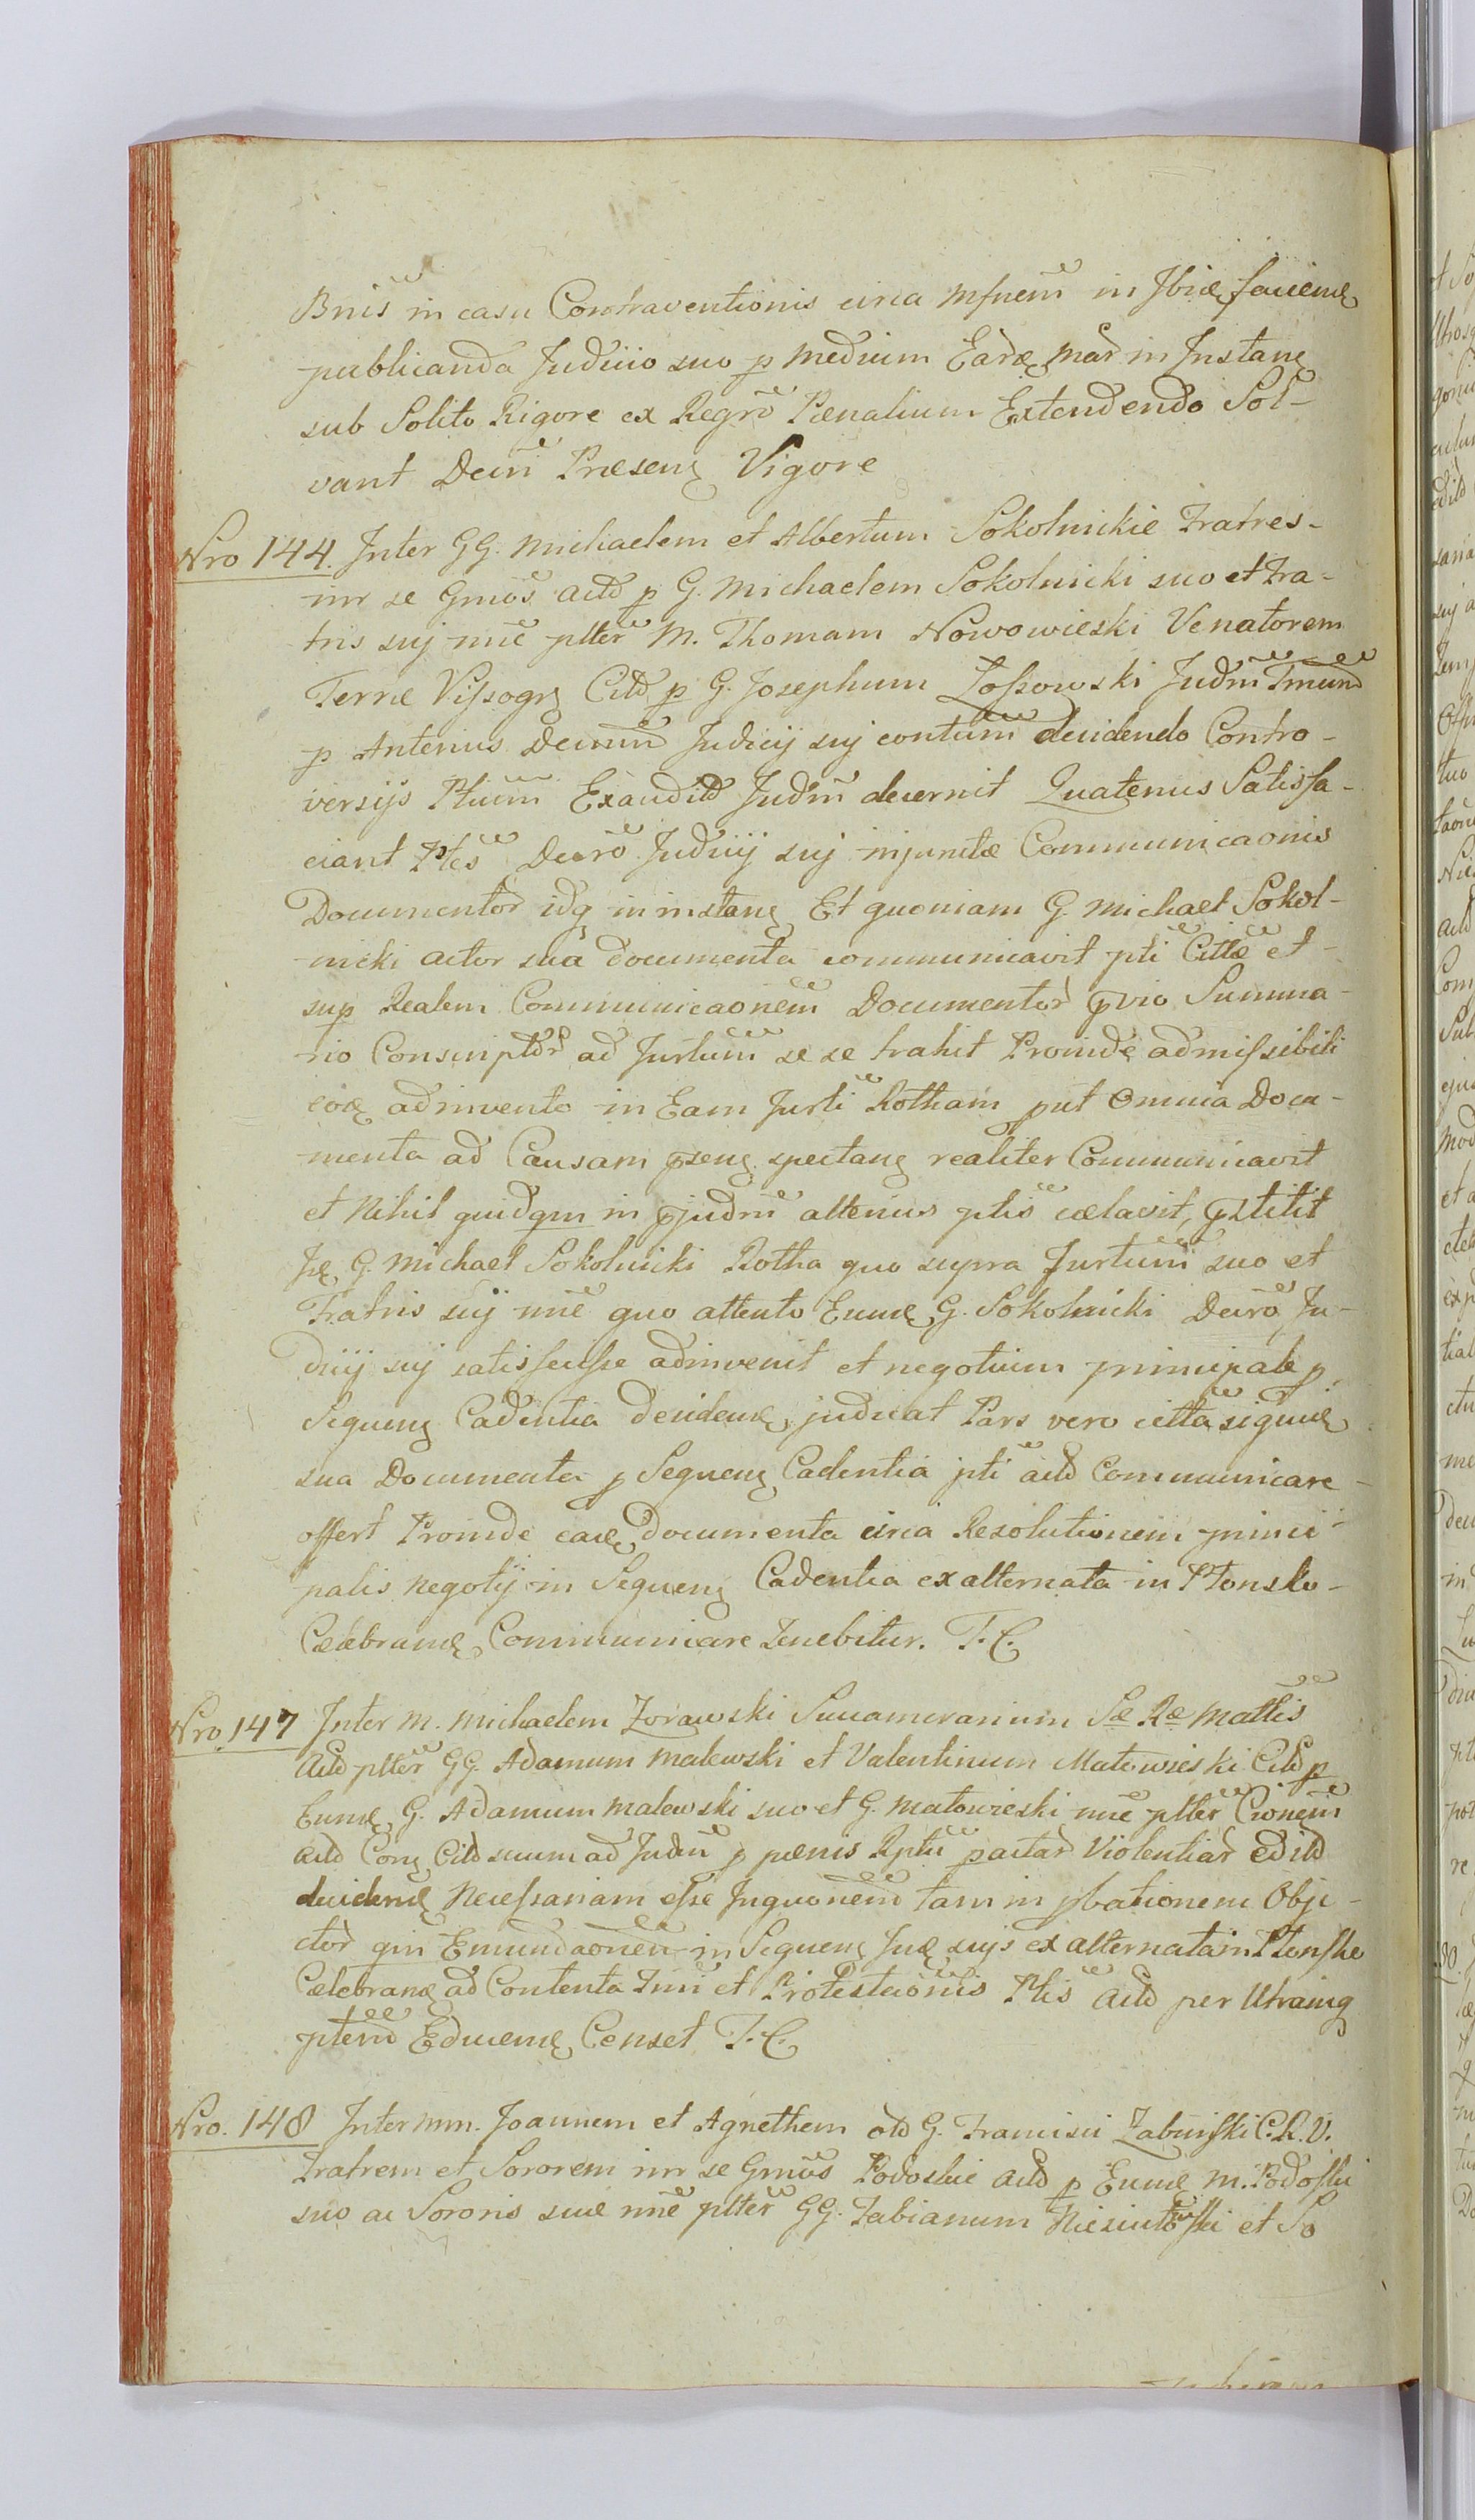 Bnis in casu Contraventionis circa mfnem in Jbiæ faciemę
publicanda Judicio suo p medium Earę Mar in Instanę
sub Solito Rigore ex Regro Pænalium Extendendo Sol-
vant Decri Præsenę Vigore
Nro 144. Inter GG. Michaelem et Albertum Sokolnickie Fratres-
inr se Gmos actd p G. Michaelem Sokolnicki suo et Fra-
tris suj nne pltter M. Thomam Nowowieski Venatorem
Terræ Vissogrę Citd p G. Josephum Łossowski Judm Tmund
p Anterius Decrum Judicij suj contum decidendo Contro-
versijs Ptium Exauditd Judm decernit Quatenus Satisfa-
ciant Ptes Decro Judicij suj injunctæ Communicaonis
Documentor idq in instanę Et quoniam G. Michael Sokol-
nicki actor sua documenta communicavit pti Cittæ et
sup Realem Communicaonem Documentor pvio Summa-
rio Conscriptor ad Jurtum se se trahit Proinde admissibili
eoę adinvento in Eam Jurti Rotham put Omnia Docu-
menta ad Causam psenę spectanę realiter Communicavit
et Nihil quidqm in pjudm alterius ptis cælavit, pstitit
Jpę G. Michael Sokolnicki Rotha quo supra Jurtum suo et
Fratris suj nne quo attento Eumę G. Sokolnicki Decro Ju-
dicij suj satisfecisse adinvenit et negotium principale p
Sequenę Cadentia decidemę judicat Pars vero citta signne
sua Documenta p Sequenę Cadentia pti actd Communicare
offert Proinde eaeę documenta circa Resolutionem princi-
palis negotij in Sequenę Cadentia ex alternata in Płonsko-
Celebramę Communicare Tenebitur. T. C.
Nro. 147 Inter M. Michaelem Zorawski Succamerarium Sæ Ræ Mattis
Actd pltter GG. Adamum Malewski et Valentinum Matowieski Citd p
Eumę G. Adamum Malewski suo et G. Matowieski nne pltter Cionem
actd Conę Citd suum ad Judm p pænis Rptu pactar Violentiar Editd
decidemę Necessariam esse Inquonem tam in pbationem Obje-
ctor qm Emundaonem in Sequenę Jud suijs ex alternata in Płonsko
Celebranę ad Contenta Tmi et Protestaonis Ptis actd per Utramq
ptem Educemę Censet T. C.
Nro. 148 Inter MM. Joannem et Agnethem otd G. Francisci Zabinski C. R. V.
Fratrem et Sororem inr se Gmos Podoskie actd p Eumę M. Podoski
suo ac Sororis suæ nne pltter GG. Fabianum et So